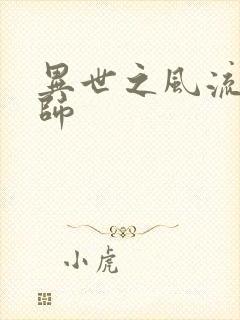 異世之風流
師
小虎